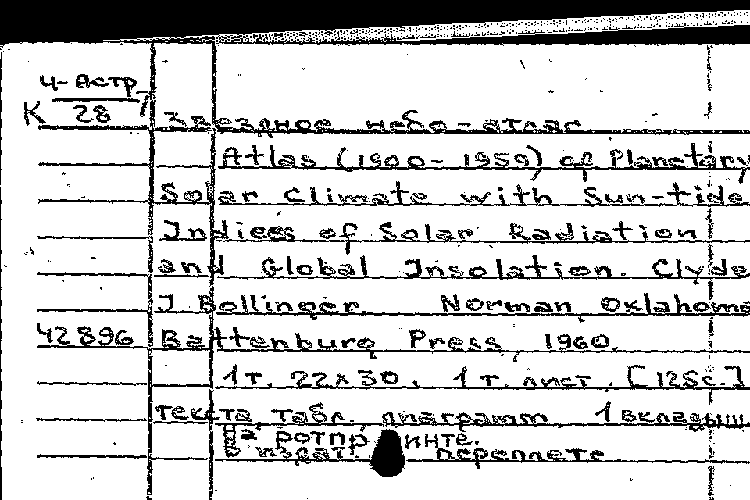 Ч-Астр
К 28 7
Звездное небо-атлас
Atlas (1900-1959) of Planetary
Solar Climate with Sun-tide
Indices of Solar Radiation
and Global Insolation. Clyde
J Bollinger. Norman, Oxlahoma
42896 Battenburg Press, 1960.
1 т. 22х30. 1 т. лист. [125с.]
текста, табл., диаграмм, 1 вкладыш.
На ротпринте.
В издат. переплете